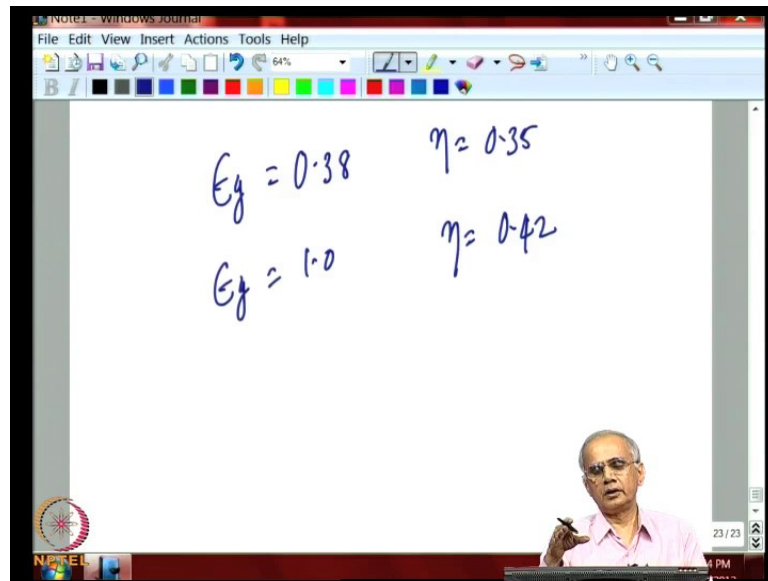 Note1 - Windows Journal
File Edit View Insert Actions Tools Help
64%
B I
ϵg = 0.38 η = 0.35
ϵg = 1.0 η = 0.42
23 / 23
4 PM
NPTEL